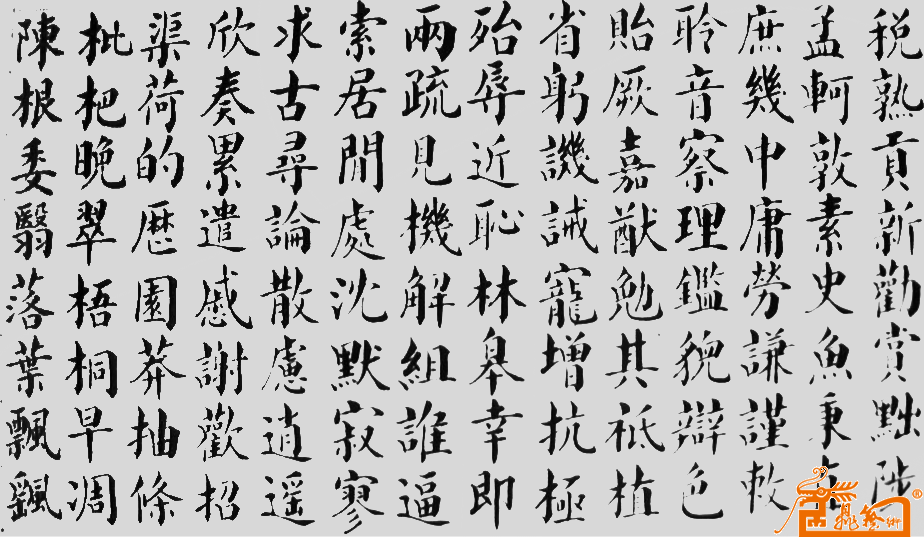 税熟貢新勸賞黜陟
孟軻敦素史魚秉直
庶幾中庸勞謙謹敕
聆音察理鑑貌辯色
貽厥嘉猷勉其祗植
省躬譏誡寵增抗極
殆辱近恥林皋幸即
兩疏見機解組誰逼
索居閒處沈默寂寥
求古尋論散慮逍遥
欣奏累遣慼謝歡招
渠荷的歷園莽抽條
枇杷晚翠梧桐早凋
陳根委翳落葉飄颻